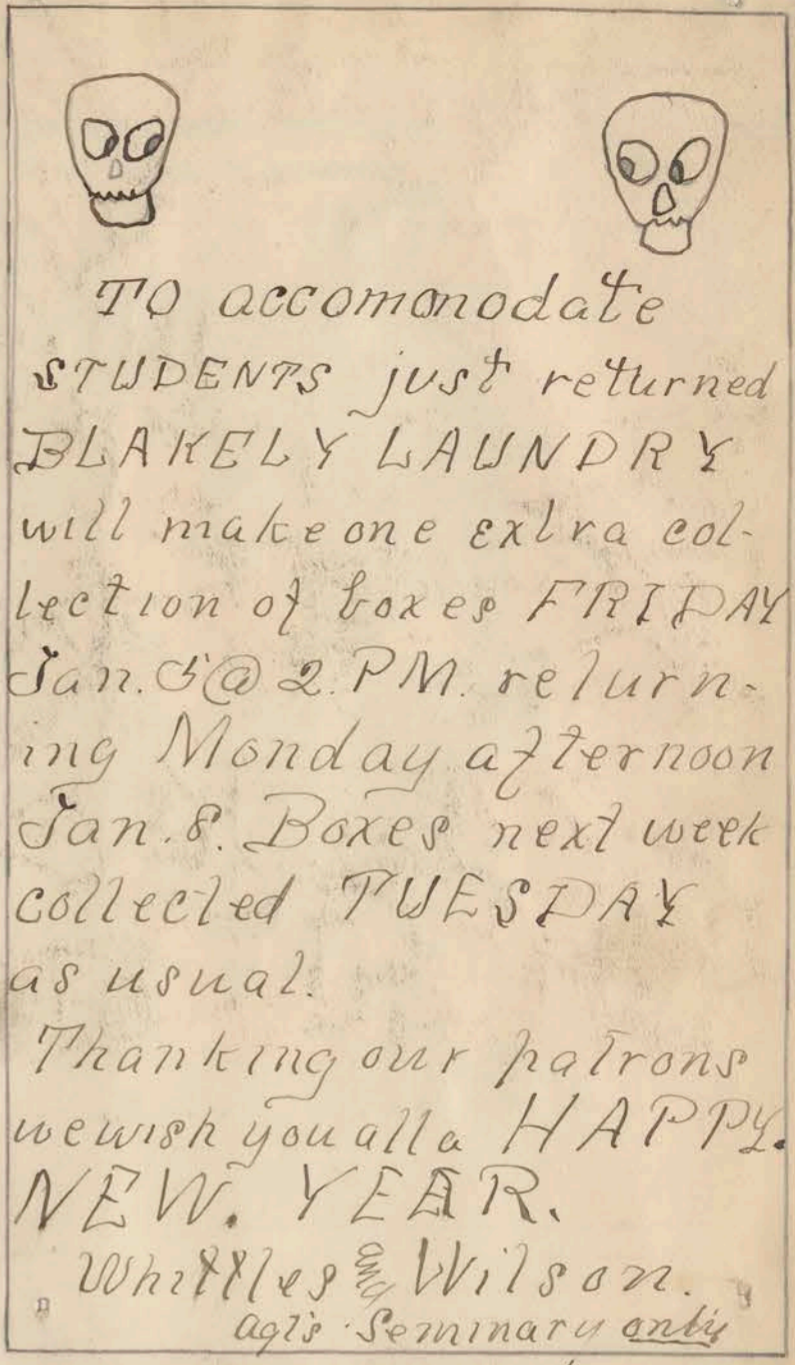 TO accommonodate
STUDENTS just returned
BLAKELY LAUNDRY
will make one extra col-
lection of boxes FRIDAY
Jan. 5 @ 2. PM. return-
ing Monday afternoon
Jan. 8. Boxes next week
collected TUESDAY
as usual.
Thanking our patrons
we wish you all a HAPPY.
NEW. YEAR.
Whittles and Wilson.
Agt's. Seminary only